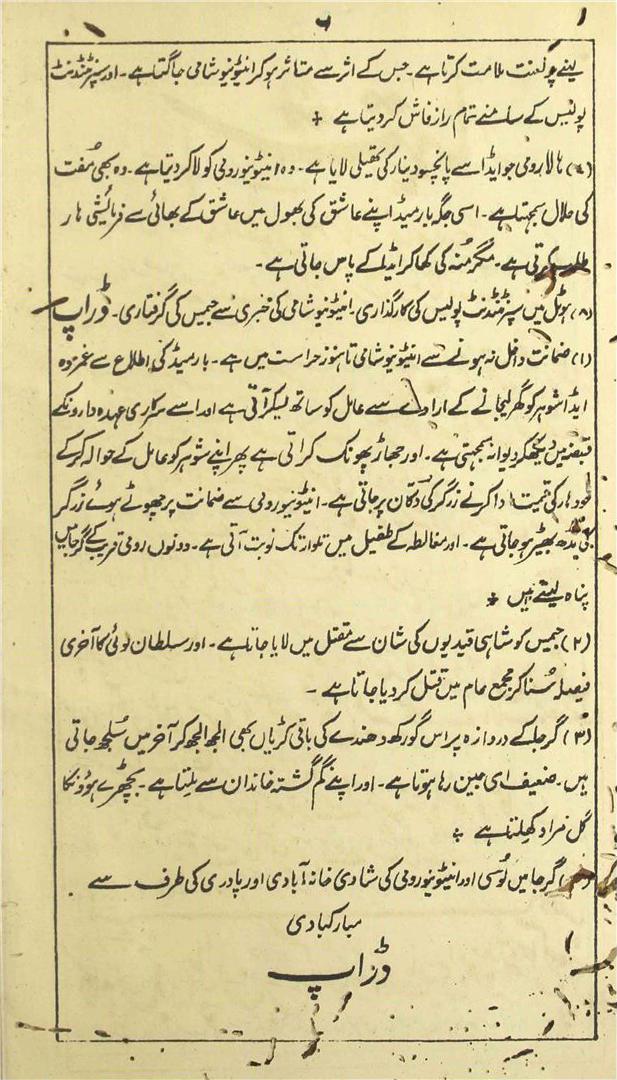 ۶
لینے پر لعنت ملامت کرتا ہے۔ جس کے اثر سے متاثر ہو کر انیٹونیو شامی جاگتا ہے۔ اور سپرنٹنڈنٹ
پولیس کے سامنے تمام راز فاش کر دیتا ہے +
(۷) ہالا رومی جو ایڈا سے پانچسو دینار کی تھیلی لایا ہے۔ وہ انیٹونیورومی کو لا کر دیتا ہے۔ وہ بھی مُفت
کی حلال سمجہتا ہے۔ اسی جگہ بارمیڈ اپنے عاشق کی بھول میں عاشق کے بھائی سے فرمائیشی ہار
طلب کرتی ہے۔ مگر مُنہ کی کھا کر ایڈا کے پاس جاتی ہے۔
(۸) ہوٹل میں سپرنٹنڈنٹ پولیس کی کارگذاری۔ انیٹونیو شامی کی مخبری سے جیمس کی گرفتاری۔ ڈراپ
(۱) ضمانت داخل نہ ہونے سے انیٹونیو شامی تا ہنوز حراست میں ہے۔ بارمیڈ کی اطلاع سے غمزدہ
ایڈا شوہر کو گھر لیجانے کے ارادے سے عامل کو ساتھ لیکر آتی ہے اور اسے سرکاری عہدہ دارونکے
قبضہ میں دیکھکر دیوانہ سمجہتی ہے۔ اور جھاڑ پھونک کراتی ہے پھر اپنے شوہر کو عامل کے حوالہ کر کے
خود ہار کی قیمت ادا کرنے زرگر کی دُکان پر جاتی ہے۔ انیٹونیورومی سے ضمانت پر چھوٹے ہوئے زرگر
کی مڈھ بھیڑ ہو جاتی ہے۔ اور مغالطہ کے طفیل میں تلوار تک نوبت آتی ہے۔ دونوں رومی قریب کے گرجا میں
پناہ لیتے ہیں +
(۲) جیمس کو شاہی قیدیوں کی شان سے مقتل میں لایا جاتا ہے۔ اور سلطان لوئی کا آخری
فیصلہ سُنا کر مجمع عام میں قتل کر دیا جاتا ہے۔
(۳) گرجا کے دروازہ پر اس گورکھ دھندے کی باقی کڑیاں بھی الجھ الجھ کر آخر میں سُلجھ جاتی
ہیں۔ ضعیف ای جین رہا ہوتا ہے۔ اور اپنے گم گشتہ خاندان سے ملتا ہے۔ بچھڑے ہوؤنکا
گل مراد کھلتا ہے +
گرجا میں لُوسی اور انیٹونیورومی کی شادی خانہ آبادی اور پادری کی طرف سے
مبارکبادی
ڈراپ